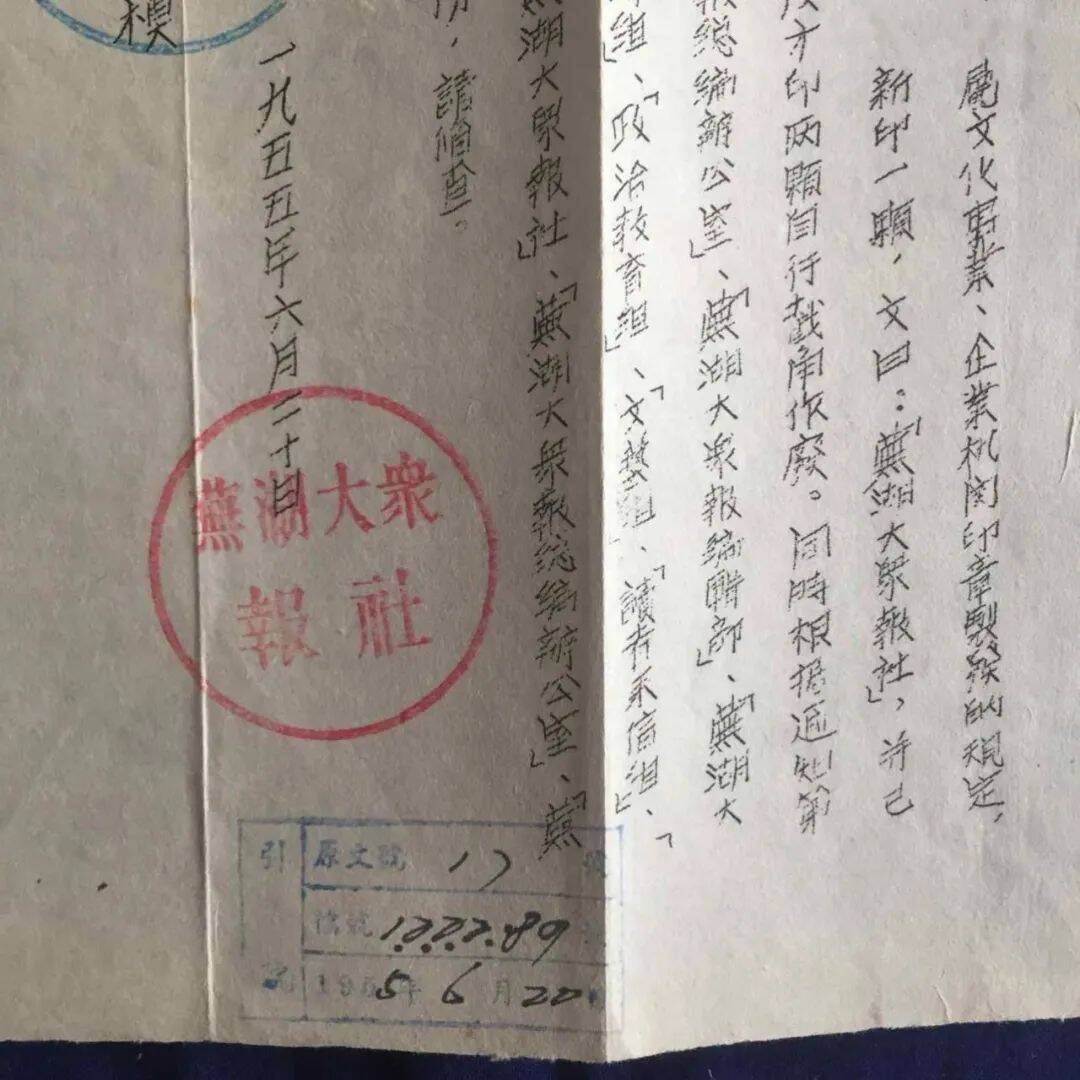 屬文化事業、企業机関印章製發的規定，
新印一顆，文曰：「蕪湖大眾報社」，并已
方印两顆自行截角作廢。同時根据通知第
報総編辦公室」、「蕪湖大眾報編輯部」、「蕪湖大
組」、「政治教育組」、「文藝組」、「讀者來信組」、「
蕪湖大眾報社」、「蕪湖大眾報総編辦公室」、「蕪
份，請備查。
一九五五年六月二十日
模
蕪湖大衆
報社
引
原文號 17 號
檔號 1222.86
1955年6月20日